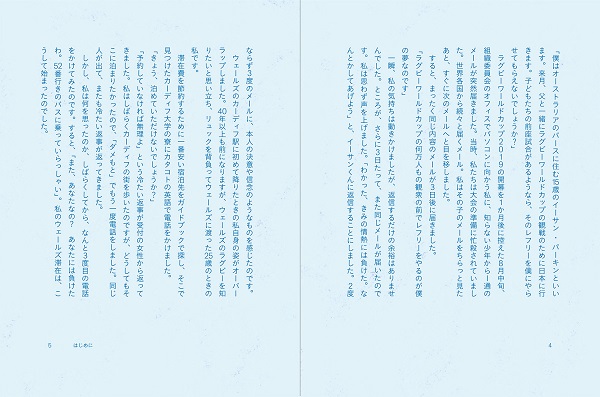 「僕はオーストラリアのパースに住む15歳のイーサン・パーキンといい
ます。来月、父と一緒にラグビーワールドカップの観戦のために日本に行
きます。子どもたちの前座試合があるようなら、そのレフリーを僕にやら
せてもらえないでしょうか?」
ラグビーワールドカップ2019の開幕を1か月後に控えた8月中旬、
組織委員会のオフィスでパソコンに向かう私に、知らない少年から1通の
メールが突然届きました。当時、私たちは大会の準備に忙殺されていまし
た。世界各国から続々と届くメール。私はその子のメールをちらっと見た
あと、すぐに次のメールへと目を移しました。
すると、まったく同じ内容のメールが3日後に届きました。
「ラグビーワールドカップの何万人もの観衆の前でレフリーをやるのが僕
の夢なのです」
一瞬、私の気持ちは動きかけましたが、返信するだけの余裕はありませ
んでした。ところが、さらに3日たって、また同じメールが届いたので
す。私は思わず声を上げました。「わかった。きみの情熱には負けた。な
んとかしてあげよう」と、イーサンくんに返信することにしました。2度
4
ならず3度のメールに、本人の決意や信念のようなものを感じたのです。
ウェールズのカーディフ駅に初めて降りたときの私自身の姿がオーバー
ラップしました。40年以上も前になりますが、ウェールズのラグビーを知
りたいと思い立ち、リュックを背負ってウェールズに渡った25歳のときの
私です。
滞在費を節約するために一番安い宿泊先をガイドブックで探し、そこで
見つけたカーディフ大学の寮にカタコトの英語で電話をかけました。
「きょう、泊めていただけないでしょうか?」
「予約していなければ無理よ」という冷たい返事が受付の女性から返って
きました。私はしばらくカーディフの街を歩いたのですが、どうしてもそ
こに泊まりたかったので、「ダメもと」でもう一度電話をしました。同じ
人が出て、またも冷たい返事が返ってきました。
しかし、私は何を思ったのか、しばらくしてから、なんと3度目の電話
をかけてみたのです。すると、「また、あなたなの? あなたには負けた
わ。52番行きのバスに乗っていらっしゃい」。私のウェールズ滞在は、こ
うして始まったのでした。
5 はじめに